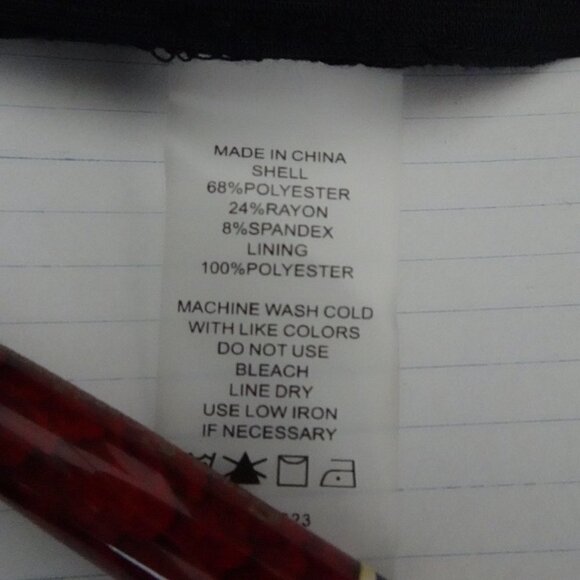 MADE IN CHINA
SHELL
68%POLYESTER
24%RAYON
8%SPANDEX
LINING
100%POLYESTER
MACHINE WASH COLD
WITH LIKE COLORS
DO NOT USE
BLEACH
LINE DRY
USE LOW IRON
IF NECESSARY